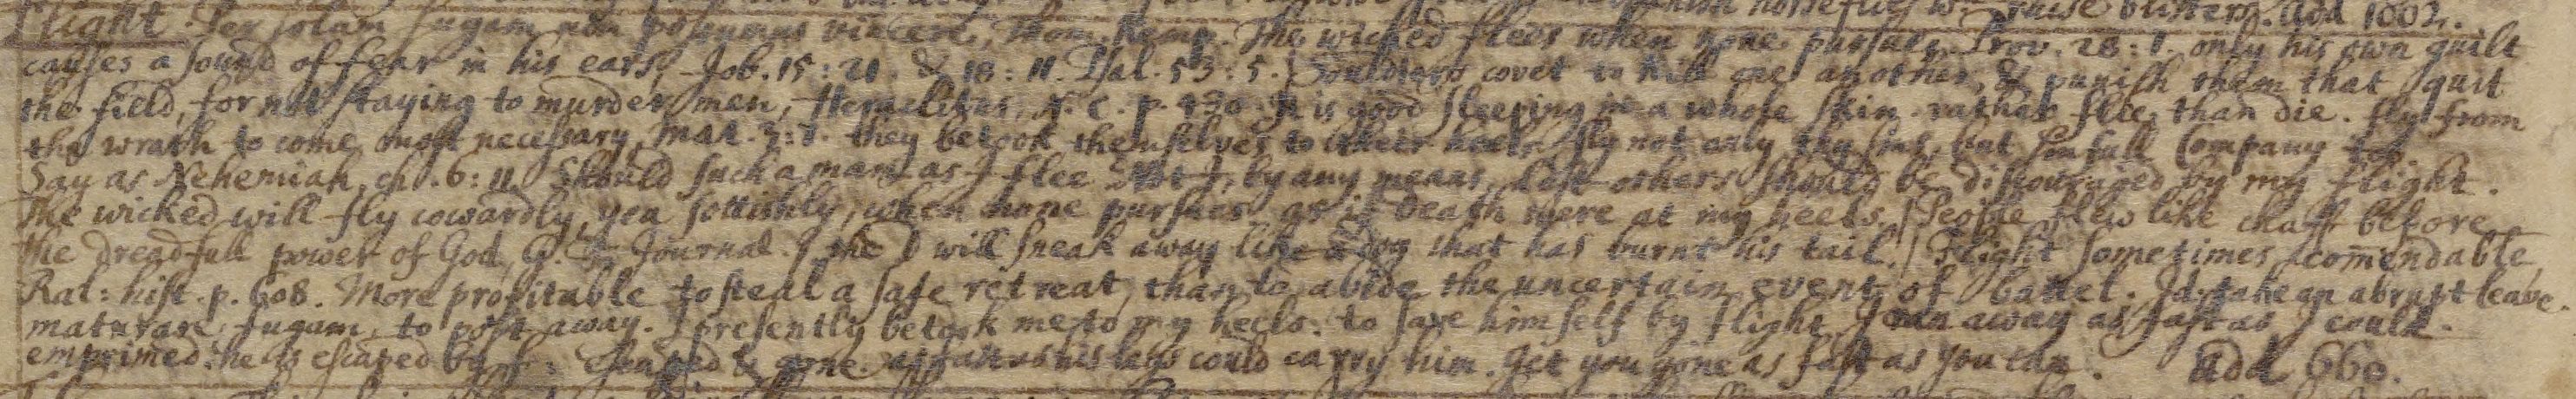 raise blisters. add 1002.
Flight. Per solam fugam non possumus vincere, Thom. Kemp. The wicked flees when none pursues, Prov. 28: 1. only his own guilt
causes a sound of fear in his ears, Job. 15: 21. & 18: 11. Psal. 53: 5. Souldiers covet to kill one another, & punish them that quit
the field, for not staying to murder men, Heraclitus, N. C. p. 430. It is good sleeping in a whole skin. rather flee than die. fly from
the wrath to come most necessary, Mat. 3: 7. they betook themselves to their heels. fly not only thy sins, but sinfull Company
Say as Nehemiah, ch. 6: 11. Should such a man as I flee Not I, by any means, Lest others should be discouraged by my flight.
The wicked will fly cowardly, yea sottishly, when none pursues as if death were at my heels. | People flew like chaff before
the dreadfull power of God, G. F. Journal. | the D will sneak away like a dog that has burnt his tail. | Flight sometimes comendable,
Ral: hist. p. 608. More profitable to steal a safe retreat, than to abide the uncertain event of battel. Id. take an abrupt leave.
maturare fugam, to post away. I presently betook me to my heels. to save himself by flight. I ran away as fast as I could.
he is escaped by f: Escaped & gone. as fast as his legs could carry him. Get you gone as fast as you can. add 660.